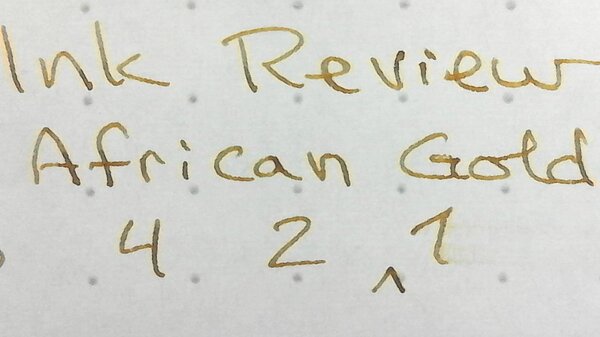 Ink Review
African Gold
4 2 1